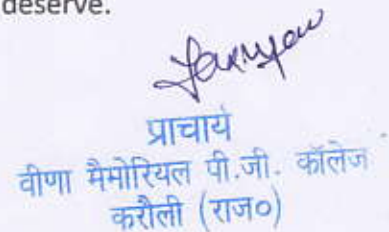 deserve.
प्राचार्य
वीणा मैमोरियल पी.जी. कॉलेज
करौली (राज०)